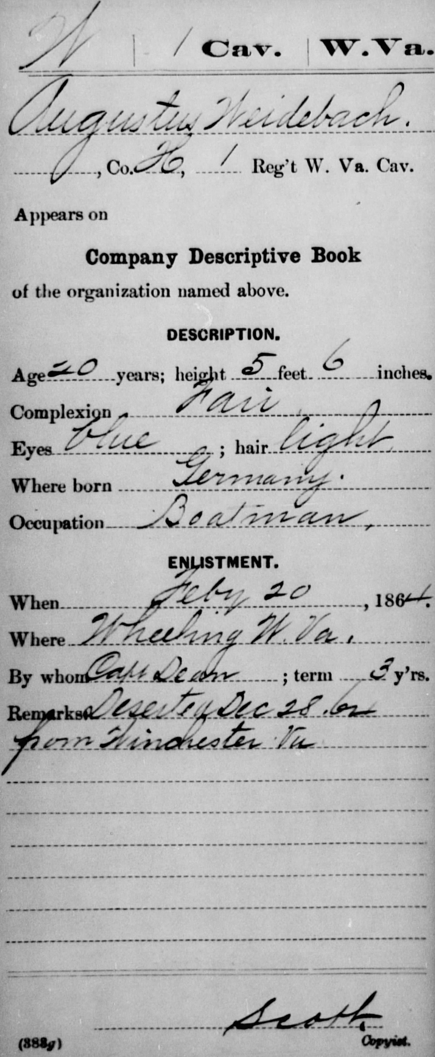 W | 1 Cav. | W.Va.
Augustus Weidebach.
, Co. H, 1 Reg't W. Va. Cav.
Appears on
Company Descriptive Book
of the organization named above.
DESCRIPTION.
Age 20 years; height 5 feet 6 inches.
Complexion Fair
Eyes blue ; hair light
Where born Germany.
Occupation Boatman,
ENLISTMENT.
When Feby 20, 1864.
Where Wheeling W. Va.
By whom Capt Dean ; term 3 y'rs.
Remarks: Deserted Dec 28.
from Winchester Va
Scott
(383g) Copyist.